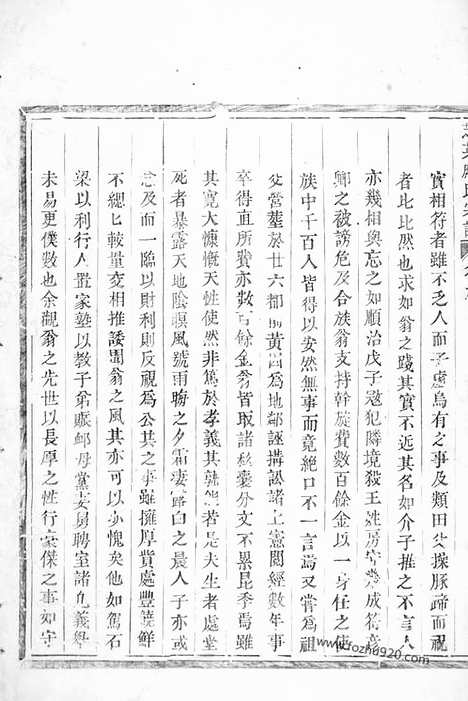 實相符者雖不乏人而子虛烏有之事及類田父操豚蹄而祝
者比比然也求如翁之踐其實不近其名如介子推之不言人
亦幾相與忘之如順治戊子冦犯隣境殺王姓房
成符意
鄉之被謗危及合族翁支持斡旋費數百餘金以一身任之使
族中千百人皆得以安然無事而竟絕口不一言焉又嘗爲祖
父營塟於廿六都
黃
爲地鄰誣搆訟諸上憲閱經數年事
卒得直所費亦數百餘金翁皆取諸私橐分文不累昆季焉雖
其寬大慷慨天性使然非篤於孝義其孰能若是夫生者處堂
死者暴露天地陰暝風號雨
之夕霜凄露白之晨人子亦或
念及而一臨以財利則反視為公其之事雖擁厚貲處豐饒鮮
不緦匕較量交相推諉聞翁之風其亦可以少愧矣他如駕石
梁以利行人置家塾以教子弟賑卹母黨妻
聘室諸凢義舉
未易更僕數也余觀翁之先世以長厚之性行豪傑之事如守
www.fozhu920.com